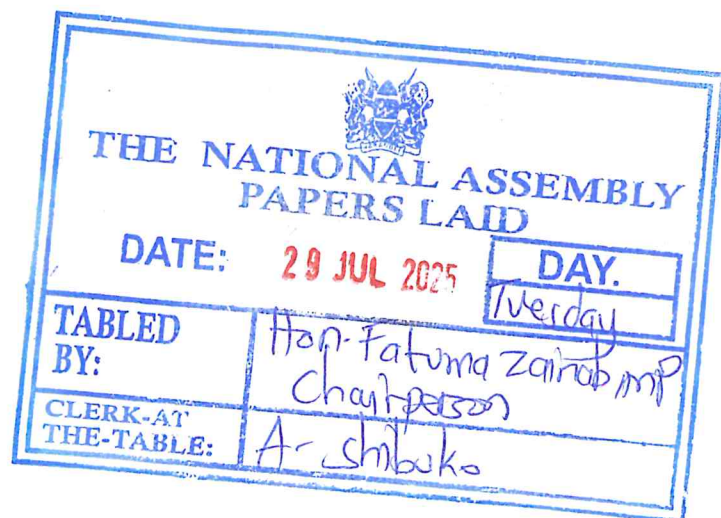 THE NATIONAL ASSEMBLY
PAPERS LAID
DATE: 29 JUL 2025 DAY.
Tuesday
TABLED BY: Hon. Fatuma Zainab, MP
Chairperson
CLERK-AT THE-TABLE: A. Shibuko